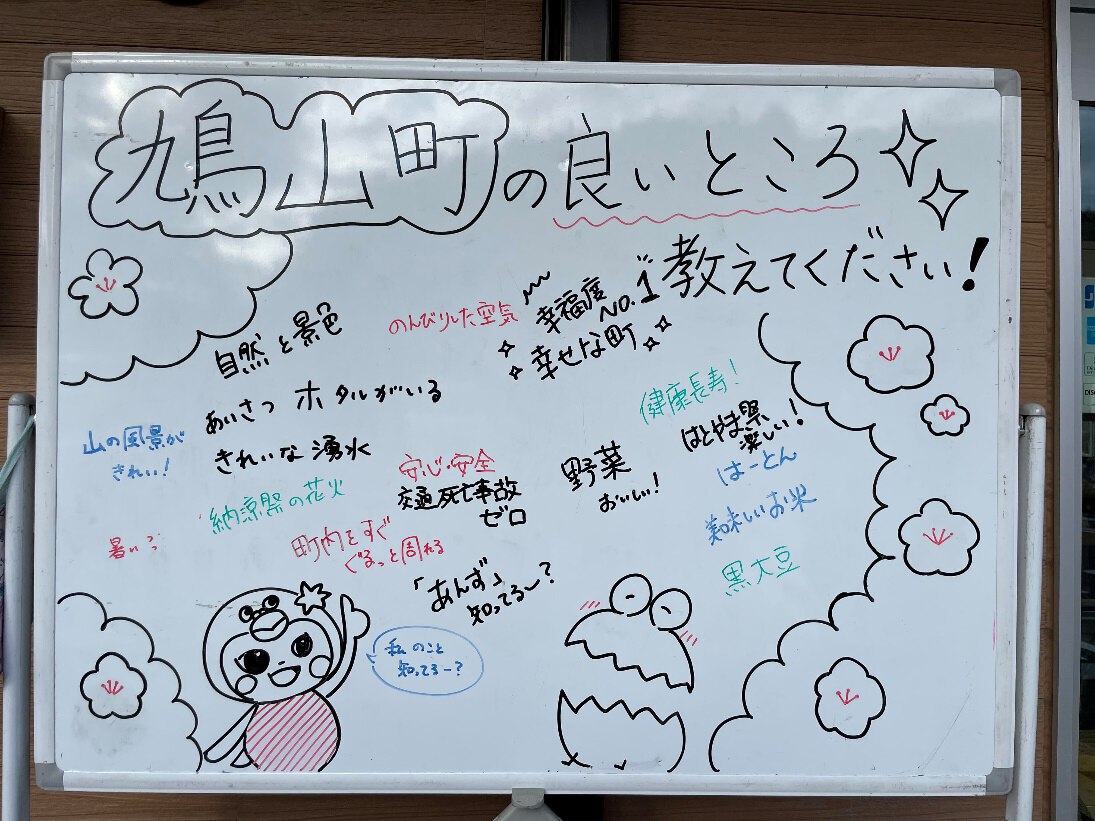 鳩山町の良いところ
教えてください!
のんびりした空気
幸福度
NO.1
幸せな町
自然と景色
あいさつ
ホタルがいる
山の風景が
きれい!
きれいな湧水
健康長寿!
はとやま祭
楽しい!
はーとん
安心・安全
交通死亡事故
ゼロ
野菜
おいしい!
納涼祭の花火
美味しいお米
暑いっ
町内をすぐ
ぐるっと周れる
黒大豆
「あんず」
知ってる〜?
私のこと
知ってるー?